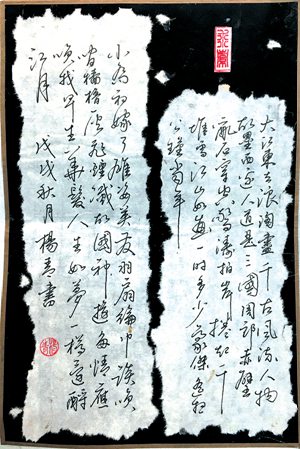 大江東去浪淘盡千古風流人物
故壘西邊人道是三國周郎赤壁
亂石穿空驚濤拍岸捲起千
堆雪江山如畫一時多少豪傑遙想
公瑾當年
小喬初嫁了雄姿英發羽扇綸巾談笑
間檣櫓灰飛煙滅故國神遊多情應
笑我早生華髮人生如夢一樽還酹
江月 戊戌秋月楊青書